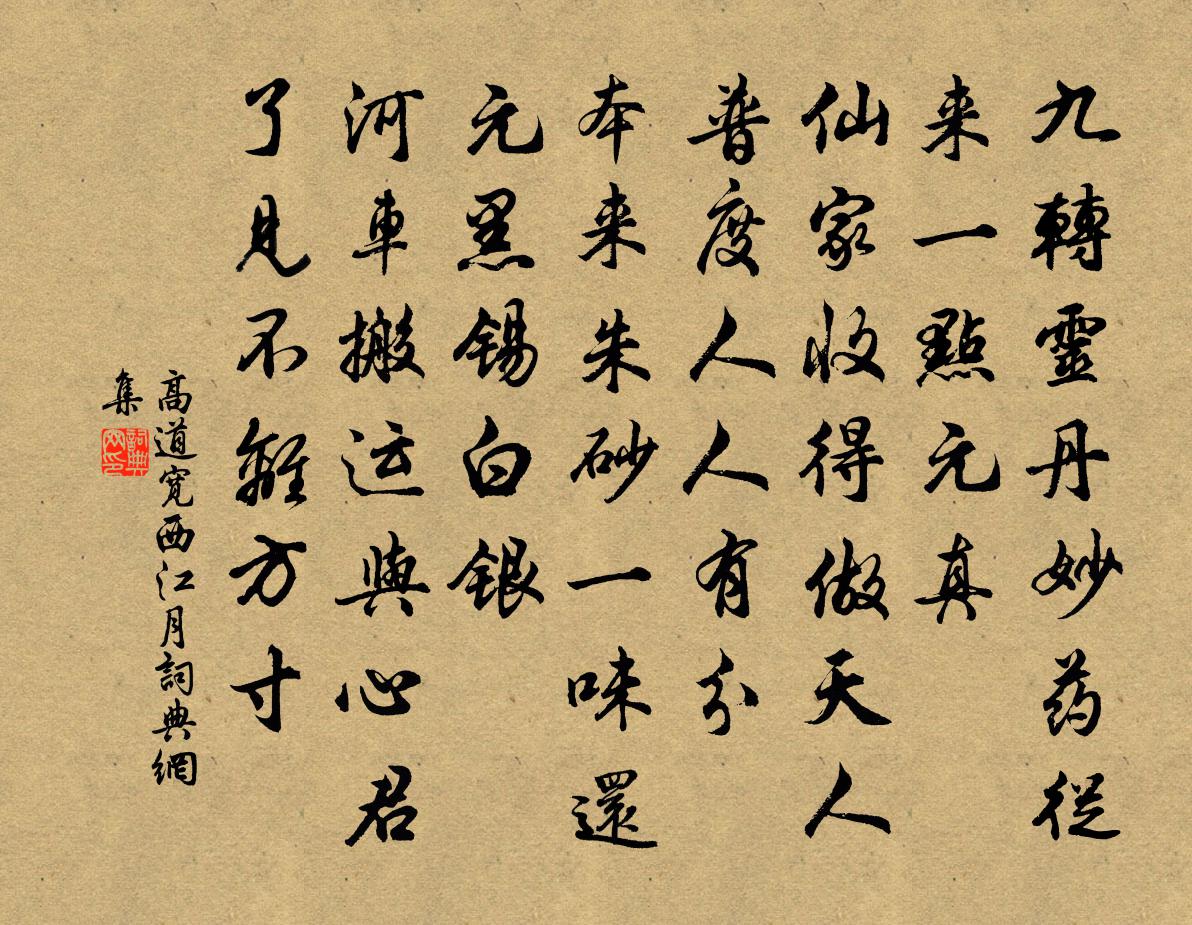 九轉靈丹妙药從
来一點元真
仙家收得做天人
普度人人有分
本来朱砂一味還
元黑锡白銀
河車搬运與心君
了見不離方寸
高道寬西江月詞典網
集
詞典
网印